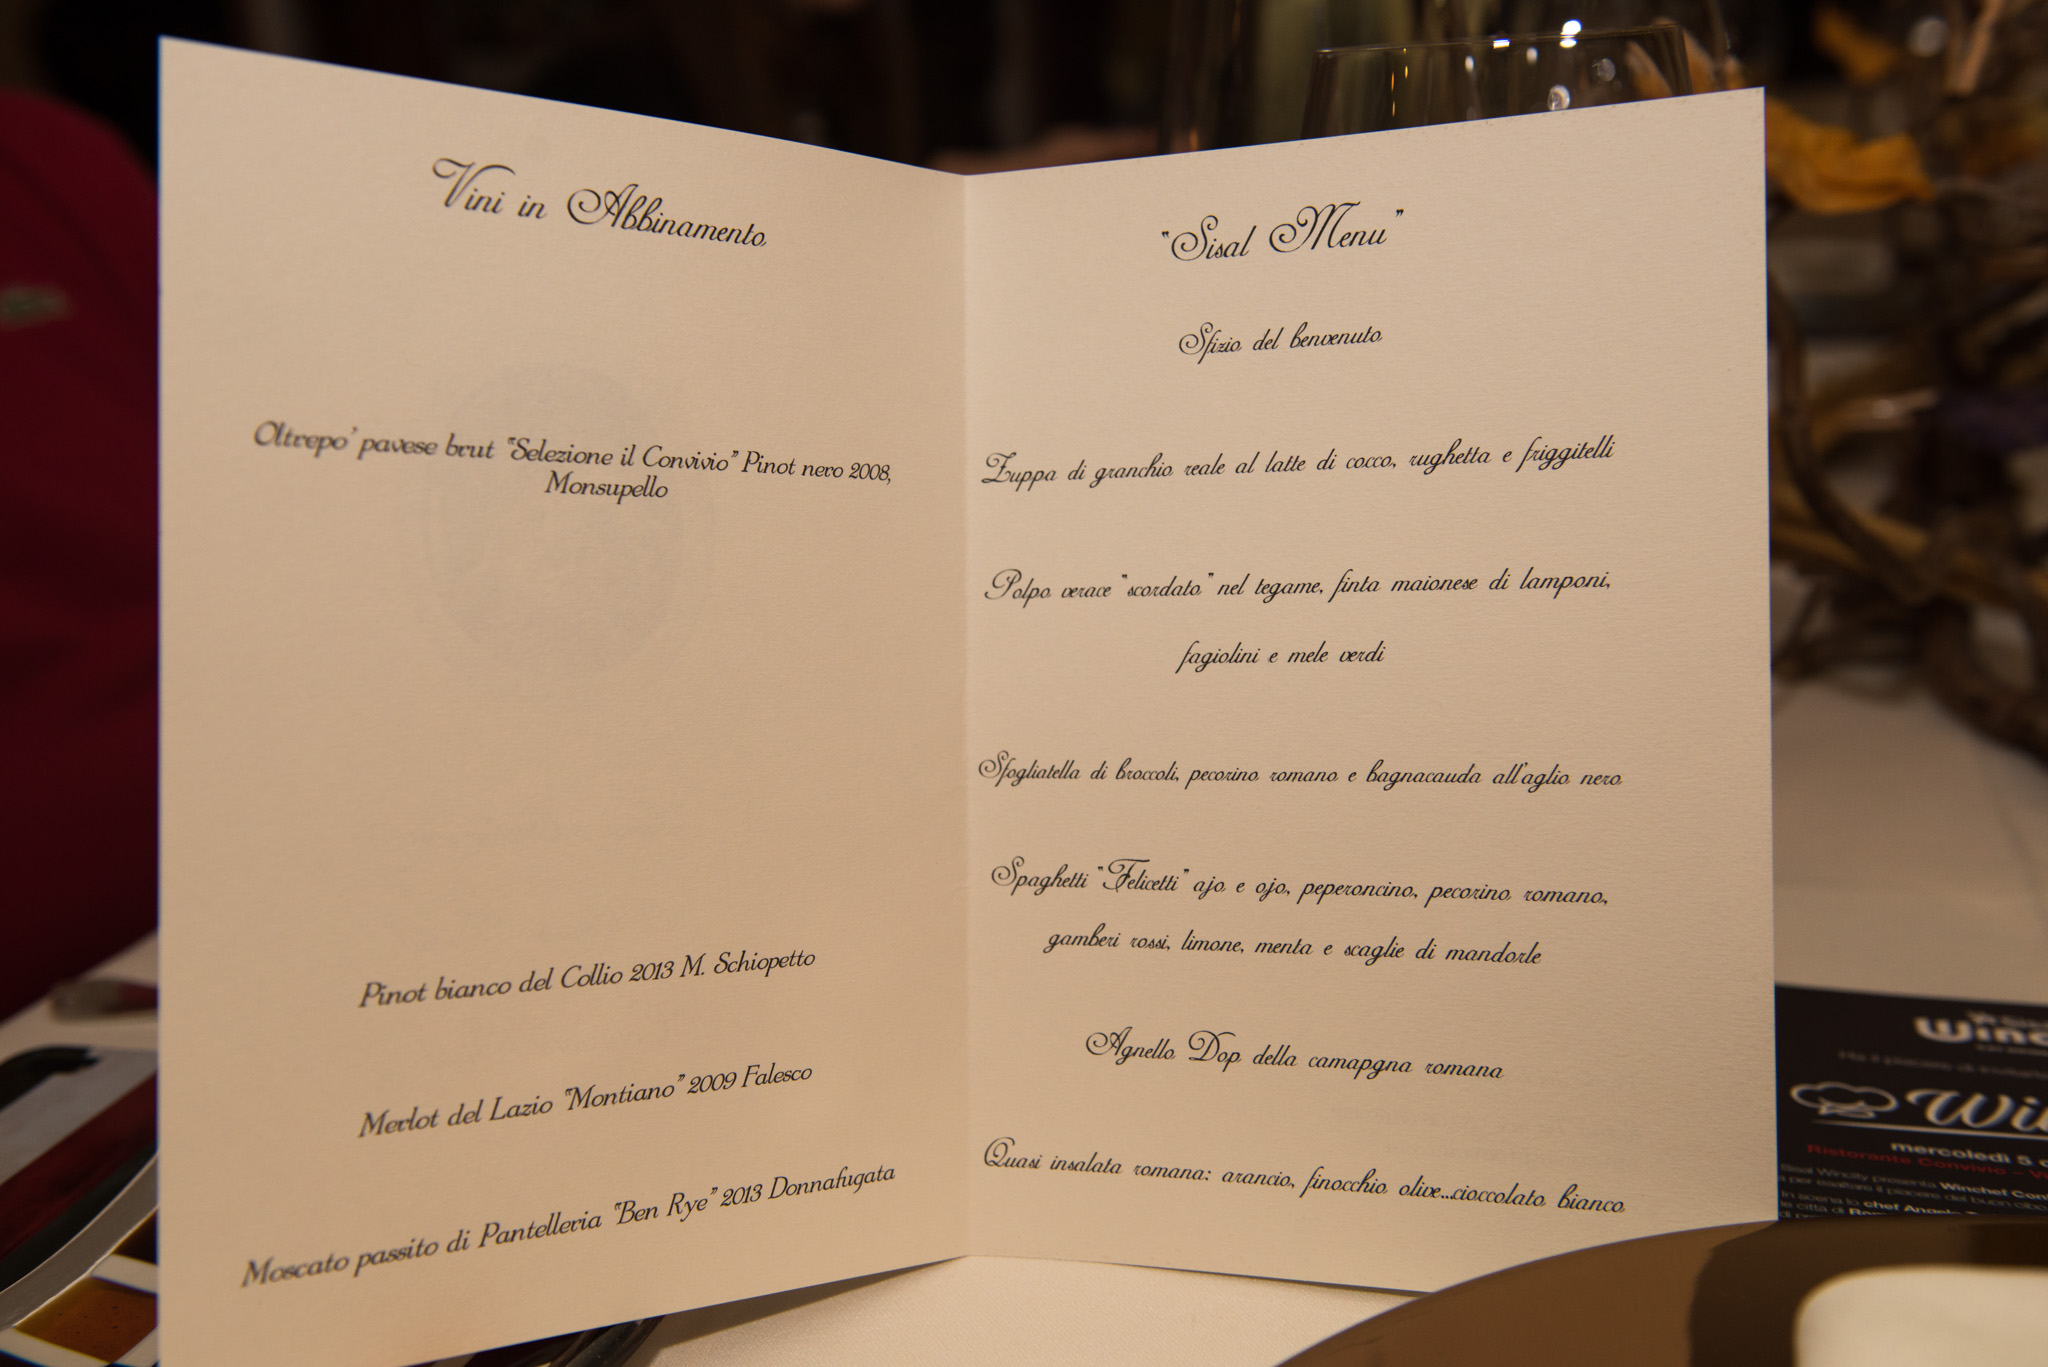 Vini in Abbinamento
Oltrepo' pavese brut "Selezione il Convivio" Pinot nero 2008,
Monsupello
Pinot bianco del Collio 2013 M. Schiopetto
Merlot del Lazio "Montiano" 2009 Falesco
Moscato passito di Pantelleria "Ben Rye" 2013 Donnafugata
"Sisal Menu"
Sfizio del benvenuto
Zuppa di granchio reale al latte di cocco, rughetta e friggitelli
Polpo verace "scordato" nel tegame, finta maionese di lamponi,
fagiolini e mele verdi
Sfogliatella di broccoli, pecorino romano e bagnacauda all'aglio nero
Spaghetti "Felicetti" ajo e ojo, peperoncino, pecorino romano,
gamberi rossi, limone, menta e scaglie di mandorle
Agnello Dop della camapgna romana
Quasi insalata romana: arancio, finocchio olive...cioccolato bianco
mercoledi 5
Ristorante Convivio
Sisal Wincity presenta Winchef
In scena lo chef Angelo